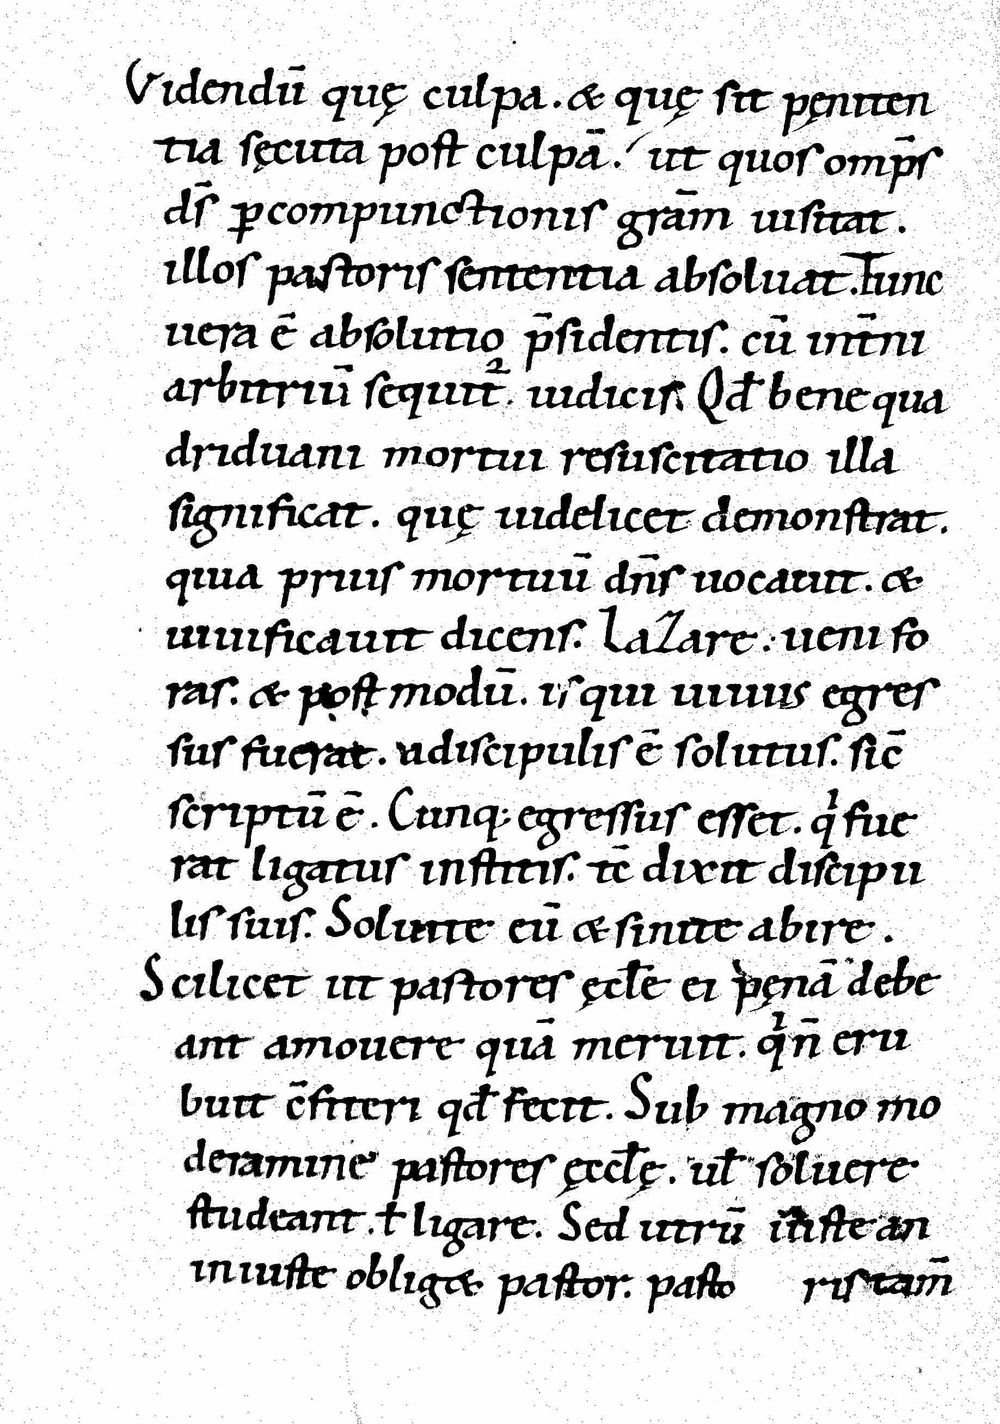 Videndū quę culpa. & quę sit pęniten
tia sęcuta post culpā. ut quos omp̄s
ds̄ ꝑ compunctionis gr̄am uisitat.
illos pastoris sententia absoluat. Tunc
uera ē absolutio p̄sidentis. cū int̄ni
arbitriū sequit᷑. iudicis. Qđ bene qua
driduani mortui resuscitatio illa
significat. quę uidelicet demonstrat.
quia prius mortuū dn̄s uocauit. &
uiuificauit dicens. LaZare. ueni fo
ras. & post modū. is qui uiuus egres
sus fuerat. a discipulis ē solutus. sic̄
scriptū ē. Cunq; egressus esset. qͥ fue
rat ligatus institis. tc̄ dixit discipu
lis suis. Soluite eū & sinite abire.
Scilicet ut pastores ęcłe ei pęnā debe
ant amouere quā meruit. qͥ n̄ eru
buit c̄fiteri qđ fecit. Sub magno mo
deramine pastores ęccłę. uł soluere
studeant. ł ligare. Sed utrū iuste an
iniuste oblig& pastor. pasto ris tam̄